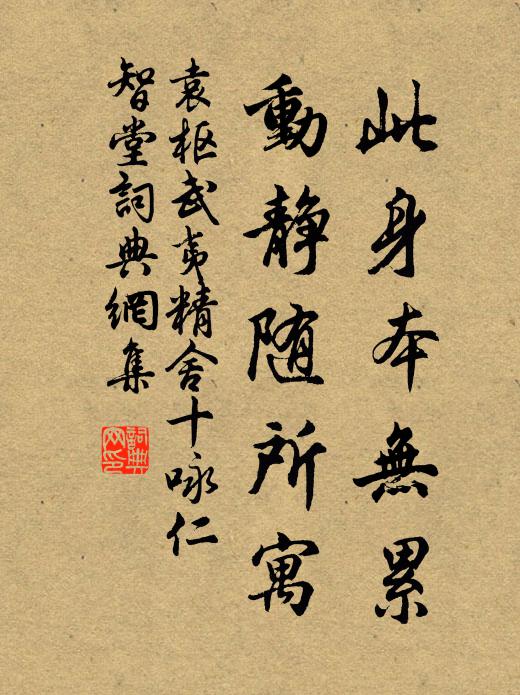 此身本無累
動静随所寓
袁枢武夷精舍十咏仁
智堂詞典網集
詞典网印